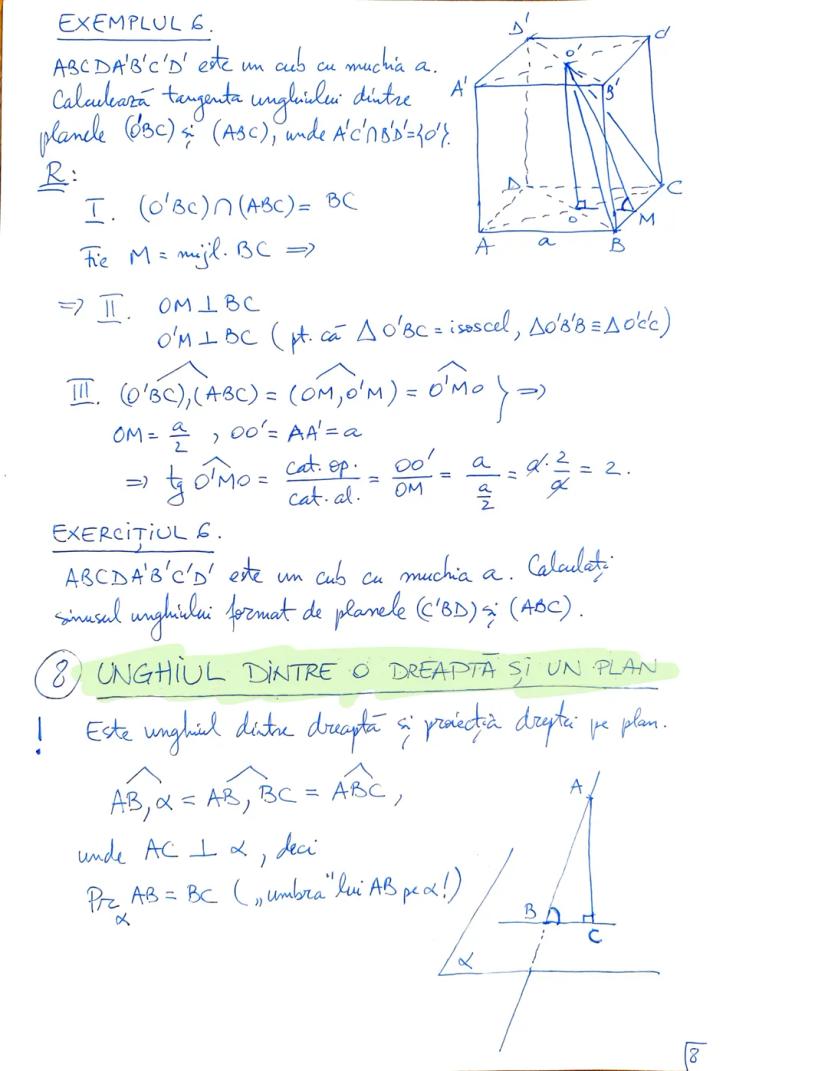 EXEMPLUL 6.
ABCDA'B'C'D' este un cub cu muchia a.
Calculează tangenta unghiului dintre
planele (O'BC) și (ABC), unde A'C'∩B'D'={O'}.
R:
I. (O'BC)∩(ABC)= BC
Fie M = mijl. BC ⇒
⇒ II. OM⊥BC
O'M⊥BC (pt. că ΔO'BC = isoscel, ΔO'B'B≡ΔO'C'C)
III. (O'BC),(ABC) = (OM,O'M) = O'MO } ⇒
OM = a/2 , OO' = AA' = a
⇒ tg O'MO = cat. op./cat. al. = OO'/OM = a/(a/2) = a·2/a = 2.
D' C' O' A' B' D C O M A a B
EXERCIȚIUL 6.
ABCDA'B'C'D' este un cub cu muchia a. Calculați
sinusul unghiului format de planele (C'BD) și (ABC).
8 UNGHIUL DINTRE O DREAPTĂ ȘI UN PLAN
! Este unghiul dintre dreaptă și proiecția dreptei pe plan.
AB, α = AB, BC = ABC,
unde AC ⊥ α, deci
Prα AB = BC („umbra" lui AB pe α!)
A
B C
α
8